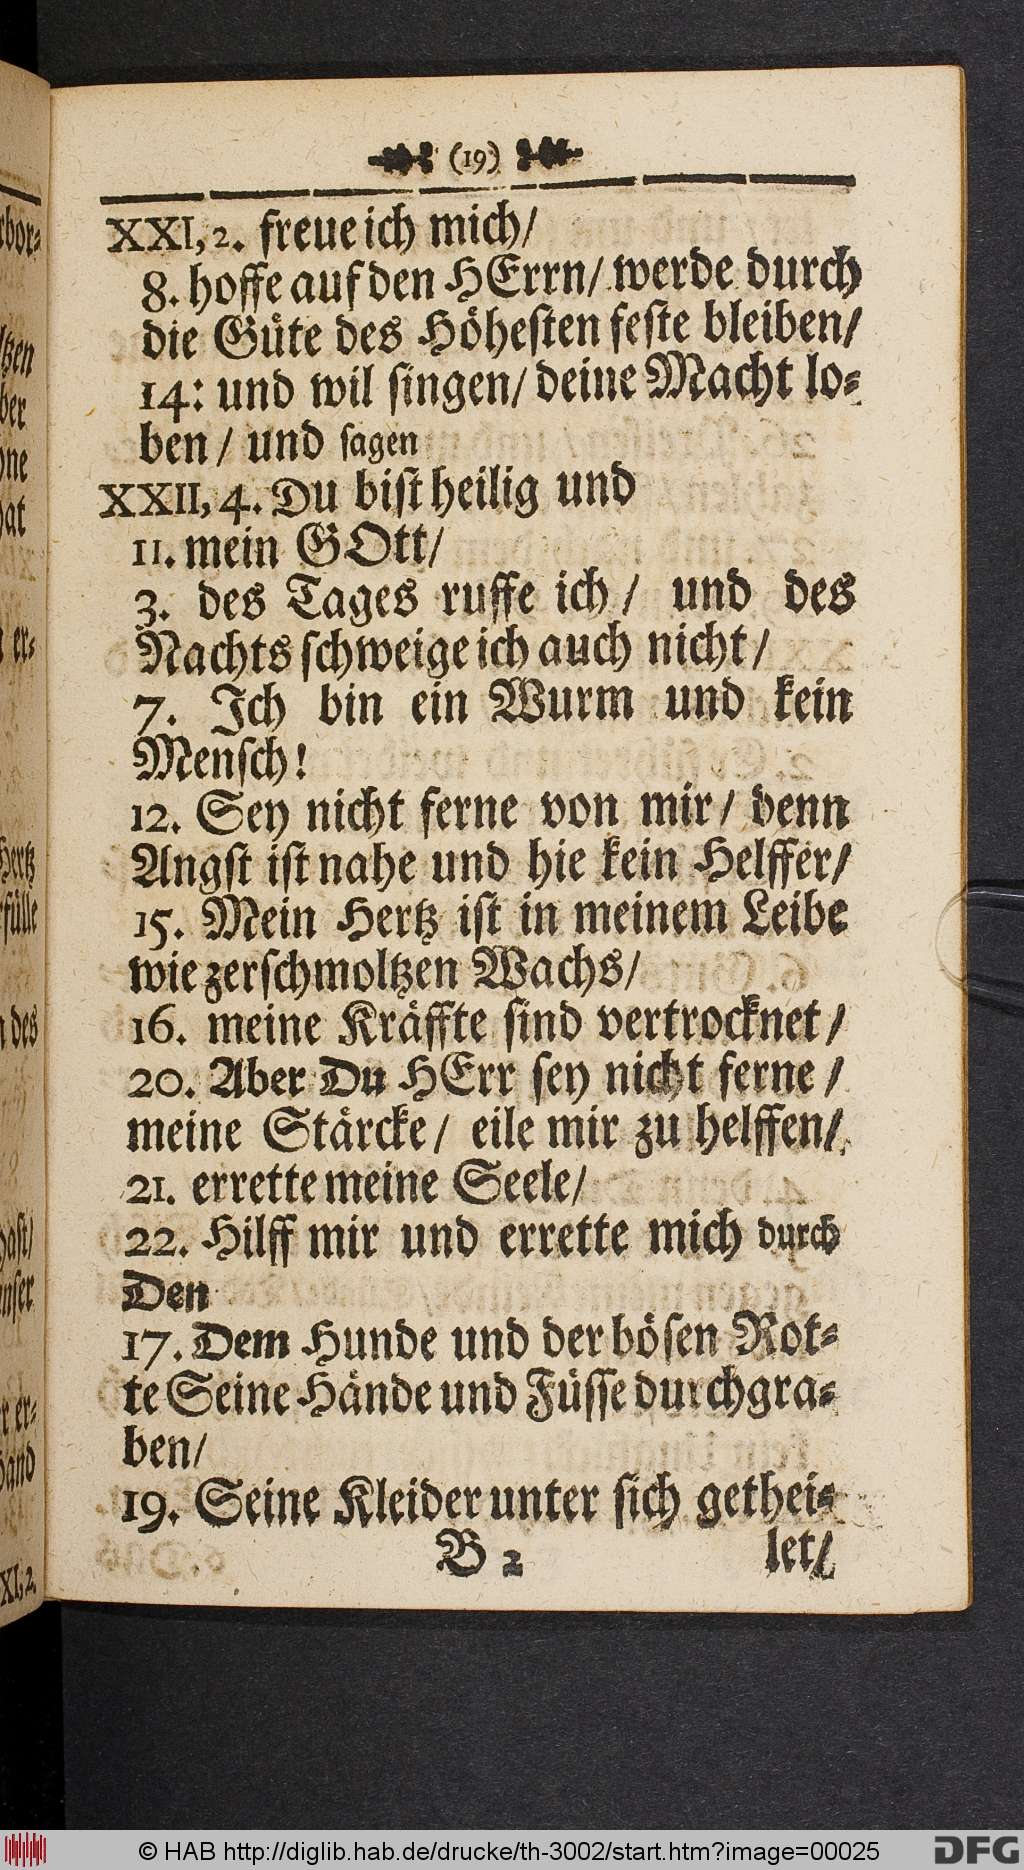 (19)
XXI, 2. freue ich mich/
8. hoffe auf den HErrn/ werde durch
die Güte des Höhesten feste bleiben/
14: und wil singen/ deine Macht lo-
ben / und sagen
XXII, 4. Du bist heilig und
11. mein GOtt/
3. des Tages ruffe ich / und des
Nachts schweige ich auch nicht/
7. Ich bin ein Wurm und kein
Mensch!
12. Sey nicht ferne von mir/ denn
Angst ist nahe und hie kein Helffer/
15. Mein Hertz ist in meinem Leibe
wie zerschmoltzen Wachs/
16. meine Kräffte sind vertrocknet /
20. Aber Du HErr sey nicht ferne /
meine Stärcke/ eile mir zu helffen/
21. errette meine Seele/
22. Hilff mir und errette mich durch
Den
17. Dem Hunde und der bösen Rot-
te Seine Hände und Füsse durchgra-
ben/
19. Seine Kleider unter sich gethei-
B 2 let/
© HAB http://diglib.hab.de/drucke/th-3002/start.htm?image=00025
DFG